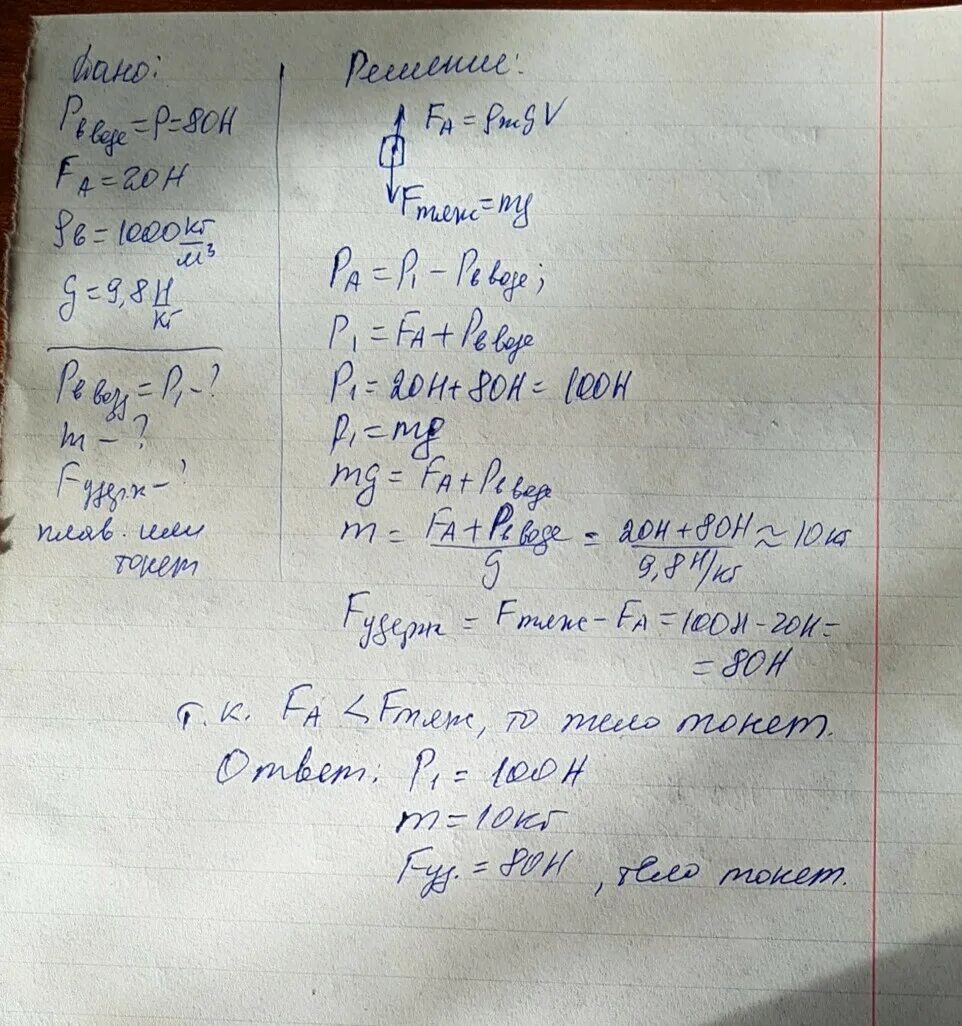 Дано:
Pв воде = P = 80Н
FА = 20Н
ρв = 1000 кг/м³
g = 9,8 Н/кг
Pв возд = P₁ - ?
m - ?
Fудерж - ?
плав. или
тонет
Решение:
FА = ρж g V
Fтяж = mg
PА = P₁ - Pв воде;
P₁ = FА + Pв воде
P₁ = 20Н + 80Н = 100Н
P₁ = mg
mg = FА + Pв воде
m = (FА + Pв воде)/g = (20Н + 80Н)/(9,8 Н/кг) ≈ 10 кг
Fудерж = Fтяж - FА = 100Н - 20Н =
= 80Н
т.к. FА < Fтяж, то тело тонет.
Ответ: P₁ = 100Н
m = 10кг
Fуд. = 80Н, тело тонет.